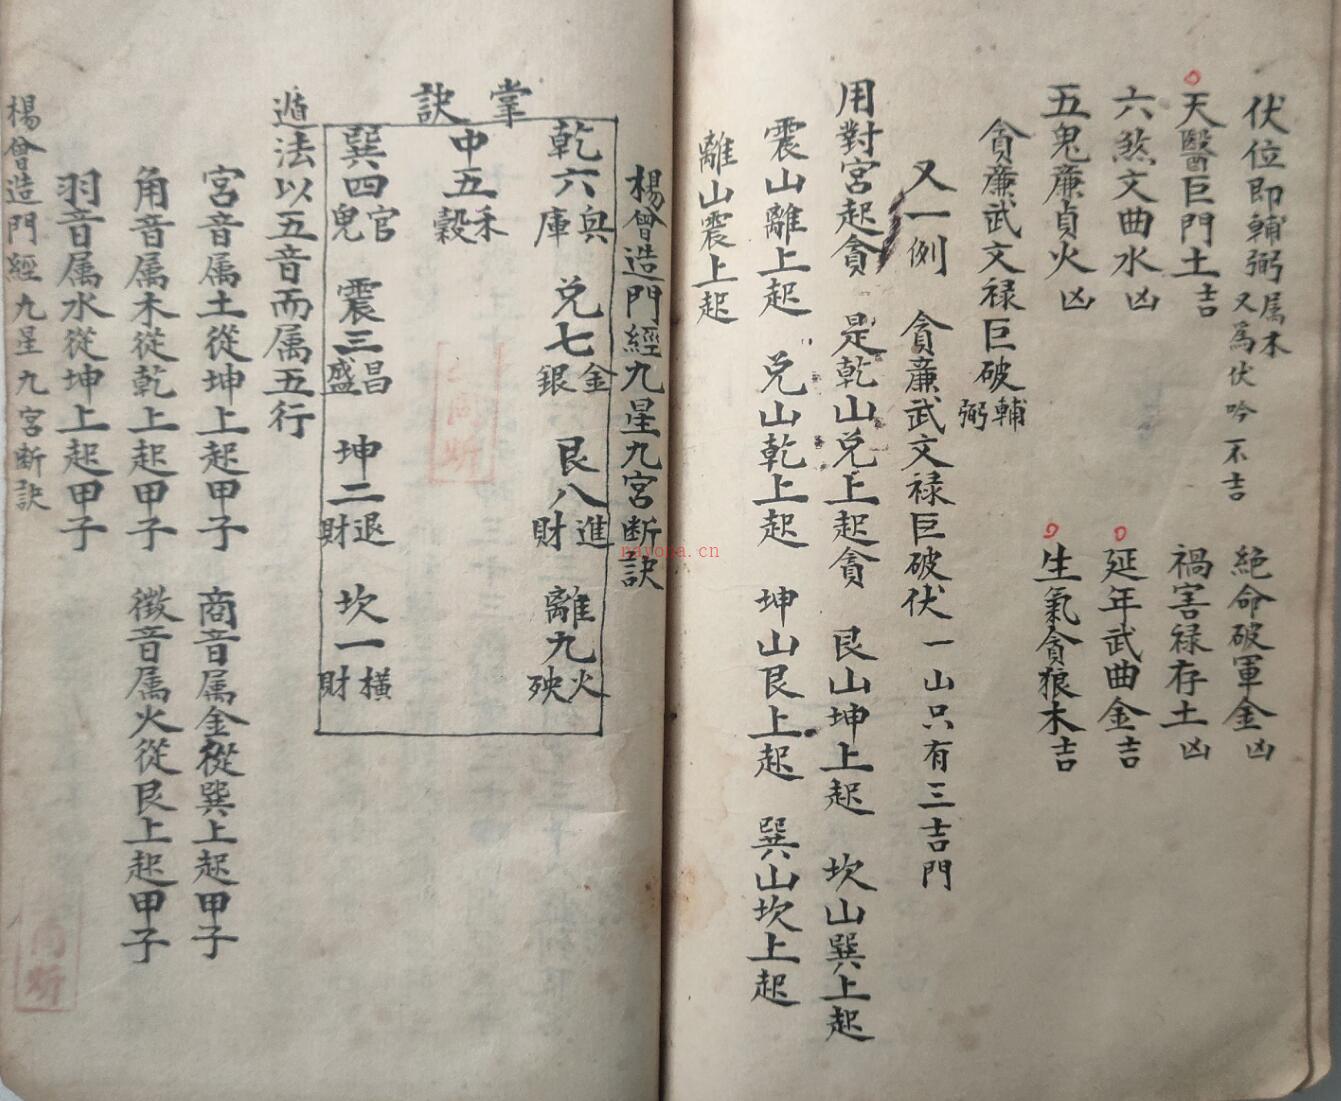 伏位即輔弼属木又為伏吟不吉 絶命破軍金凶
天醫巨門土吉 禍害禄存土凶
六煞文曲水凶 延年武曲金吉
五鬼廉貞火凶 生氣貪狼木吉
貪廉武文禄巨破輔弼
又一例 貪廉武文禄巨破伏 一山只有三吉門
用對宮起貪 是乾山兌上起貪 艮山坤上起 坎山巽上起
震山離上起 兌山乾上起 坤山艮上起 巽山坎上起
離山震上起
楊曾造門經九星九宮断訣
掌訣
乾六兵庫 兌七金銀 艮八進財 離九火殃
中五禾穀
巽四官鬼 震三昌盛 坤二退財 坎一橫財
遁法以五音而属五行
宮音属土從坤上起甲子 商音属金從巽上起甲子
角音属木從乾上起甲子 徵音属火從艮上起甲子
羽音属水從坤上起甲子
楊曾造門經九星九宮断訣
nayona.cn